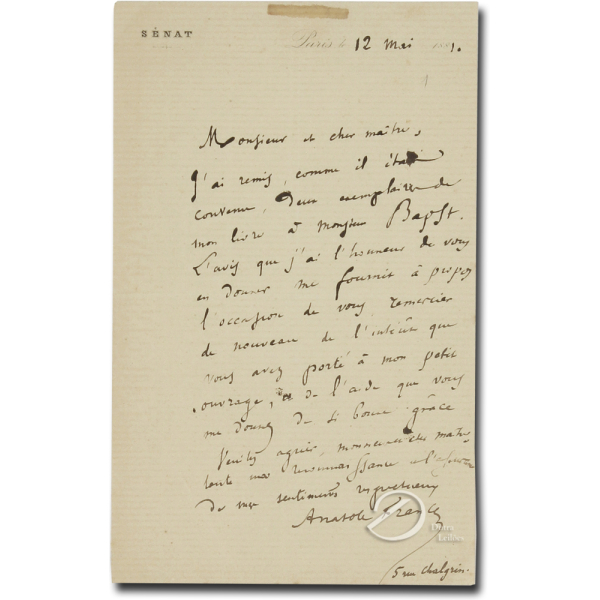 SÉNAT
Paris, le 12 mai 1881.
Monsieur et cher maître,
J'ai remis, comme il était
convenu, deux exemplaires de
mon livre à Monsieur Bapst.
L'avis que j'ai l'honneur de vous
en donner me fournit à propos
l'occasion de vous remercier
de nouveau de l'intérêt que
vous avez porté à mon petit
ouvrage, et de l'aide que vous
me donnez de si bonne grâce
Veuillez agréer, monsieur et cher maître
toute ma reconnaissance et l'assurance
de mes sentiments respectueux
Anatole France
5 rue Chalgrin.
Dutra
Leilões